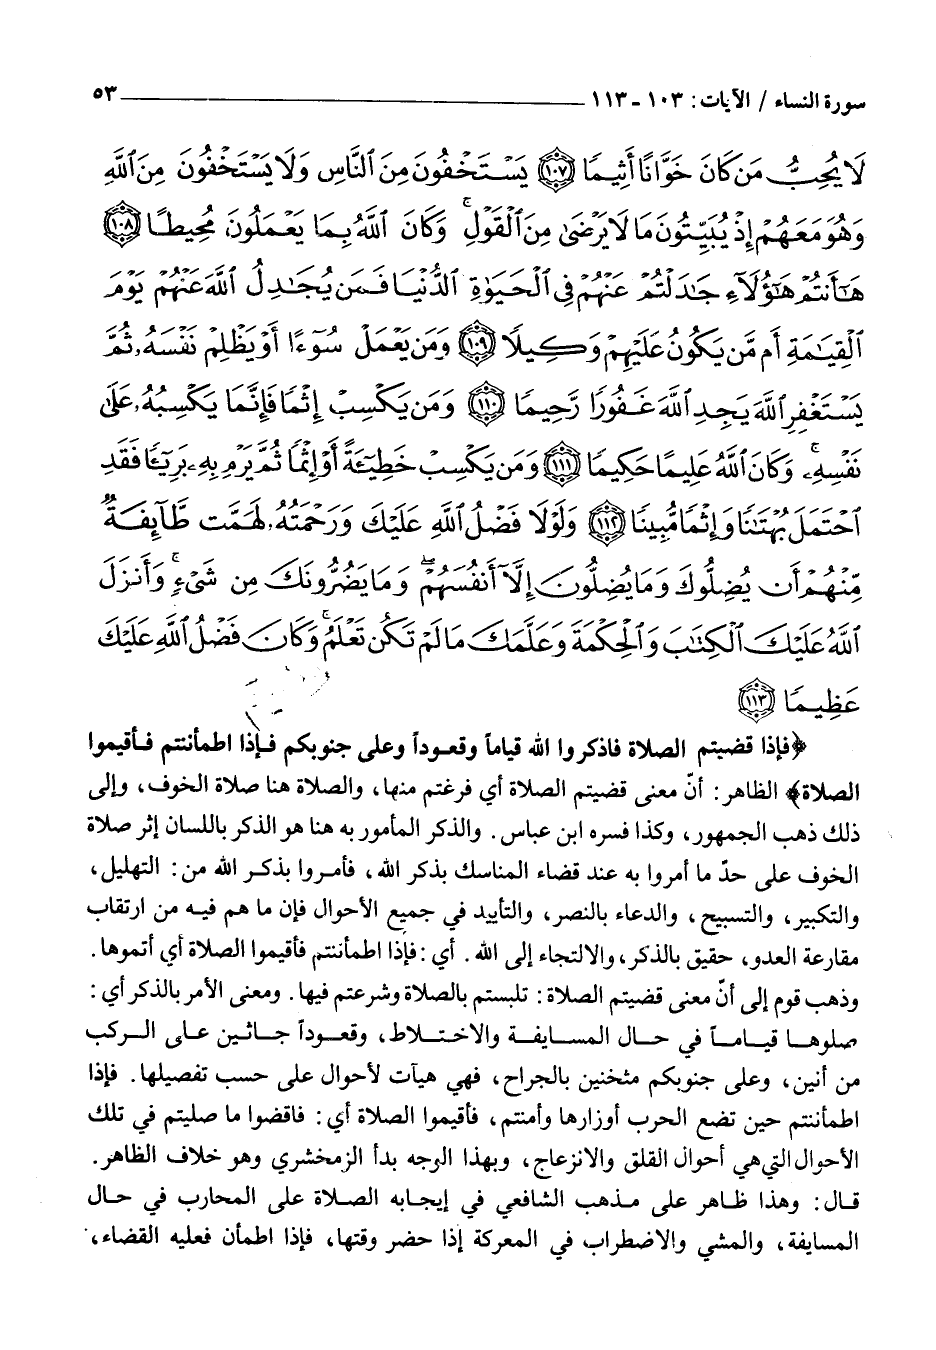 سورة النساء / الآيات : ١٠٣ - ١١٣ ٥٣
لَا يُحِبُّ مَن كَانَ خَوَّانًا أَثِيمًا ﴿١٠٧﴾ يَسْتَخْفُونَ مِنَ ٱلنَّاسِ وَلَا يَسْتَخْفُونَ مِنَ ٱللَّهِ
وَهُوَ مَعَهُمْ إِذْ يُبَيِّتُونَ مَا لَا يَرْضَىٰ مِنَ ٱلْقَوْلِ ۚ وَكَانَ ٱللَّهُ بِمَا يَعْمَلُونَ مُحِيطًا ﴿١٠٨﴾
هَـٰٓأَنتُمْ هَـٰٓؤُلَآءِ جَـٰدَلْتُمْ عَنْهُمْ فِى ٱلْحَيَوٰةِ ٱلدُّنْيَا فَمَن يُجَـٰدِلُ ٱللَّهَ عَنْهُمْ يَوْمَ
ٱلْقِيَـٰمَةِ أَم مَّن يَكُونُ عَلَيْهِمْ وَكِيلًا ﴿١٠٩﴾ وَمَن يَعْمَلْ سُوٓءًا أَوْ يَظْلِمْ نَفْسَهُۥ ثُمَّ
يَسْتَغْفِرِ ٱللَّهَ يَجِدِ ٱللَّهَ غَفُورًا رَّحِيمًا ﴿١١٠﴾ وَمَن يَكْسِبْ إِثْمًا فَإِنَّمَا يَكْسِبُهُۥ عَلَىٰ
نَفْسِهِۦ ۚ وَكَانَ ٱللَّهُ عَلِيمًا حَكِيمًا ﴿١١١﴾ وَمَن يَكْسِبْ خَطِيٓـَٔةً أَوْ إِثْمًا ثُمَّ يَرْمِ بِهِۦ بَرِيٓـًٔا فَقَدِ
ٱحْتَمَلَ بُهْتَـٰنًا وَإِثْمًا مُّبِينًا ﴿١١٢﴾ وَلَوْلَا فَضْلُ ٱللَّهِ عَلَيْكَ وَرَحْمَتُهُۥ لَهَمَّت طَّآئِفَةٌ
مِّنْهُمْ أَن يُضِلُّوكَ وَمَا يُضِلُّونَ إِلَّآ أَنفُسَهُمْ ۖ وَمَا يَضُرُّونَكَ مِن شَىْءٍ ۚ وَأَنزَلَ
ٱللَّهُ عَلَيْكَ ٱلْكِتَـٰبَ وَٱلْحِكْمَةَ وَعَلَّمَكَ مَا لَمْ تَكُن تَعْلَمُ ۚ وَكَانَ فَضْلُ ٱللَّهِ عَلَيْكَ
عَظِيمًا ﴿١١٣﴾
﴿فإذا قضيتم الصلاة فاذكروا الله قياماً وقعوداً وعلى جنوبكم فإذا اطمأننتم فأقيموا
الصلاة﴾ الظاهر : أنّ معنى قضيتم الصلاة أي فرغتم منها، والصلاة هنا صلاة الخوف، وإلى
ذلك ذهب الجمهور، وكذا فسره ابن عباس. والذكر المأمور به هنا هو الذكر باللسان إثر صلاة
الخوف على حدّ ما أمروا به عند قضاء المناسك بذكر الله، فأمروا بذكر الله من : التهليل،
والتكبير، والتسبيح، والدعاء بالنصر، والتأييد في جميع الأحوال فإن ما هم فيه من ارتقاب
مقارعة العدو، حقيق بالذكر، والالتجاء إلى الله. أي : فإذا اطمأننتم فأقيموا الصلاة أي أتموها.
وذهب قوم إلى أنّ معنى قضيتم الصلاة : تلبستم بالصلاة وشرعتم فيها. ومعنى الأمر بالذكر أي :
صلوها قياماً في حال المسايفة والاختلاط، وقعوداً جاثين على الركب
من أنين، وعلى جنوبكم مثخنين بالجراح، فهي هيآت لأحوال على حسب تفصيلها. فإذا
اطمأننتم حين تضع الحرب أوزارها وأمنتم، فأقيموا الصلاة أي : فاقضوا ما صليتم في تلك
الأحوال التي هي أحوال القلق والانزعاج، وبهذا الوجه بدأ الزمخشري وهو خلاف الظاهر.
قال : وهذا ظاهر على مذهب الشافعي في إيجابه الصلاة على المحارب في حال
المسايفة، والمشي والاضطراب في المعركة إذا حضر وقتها، فإذا اطمأن فعليه القضاء،